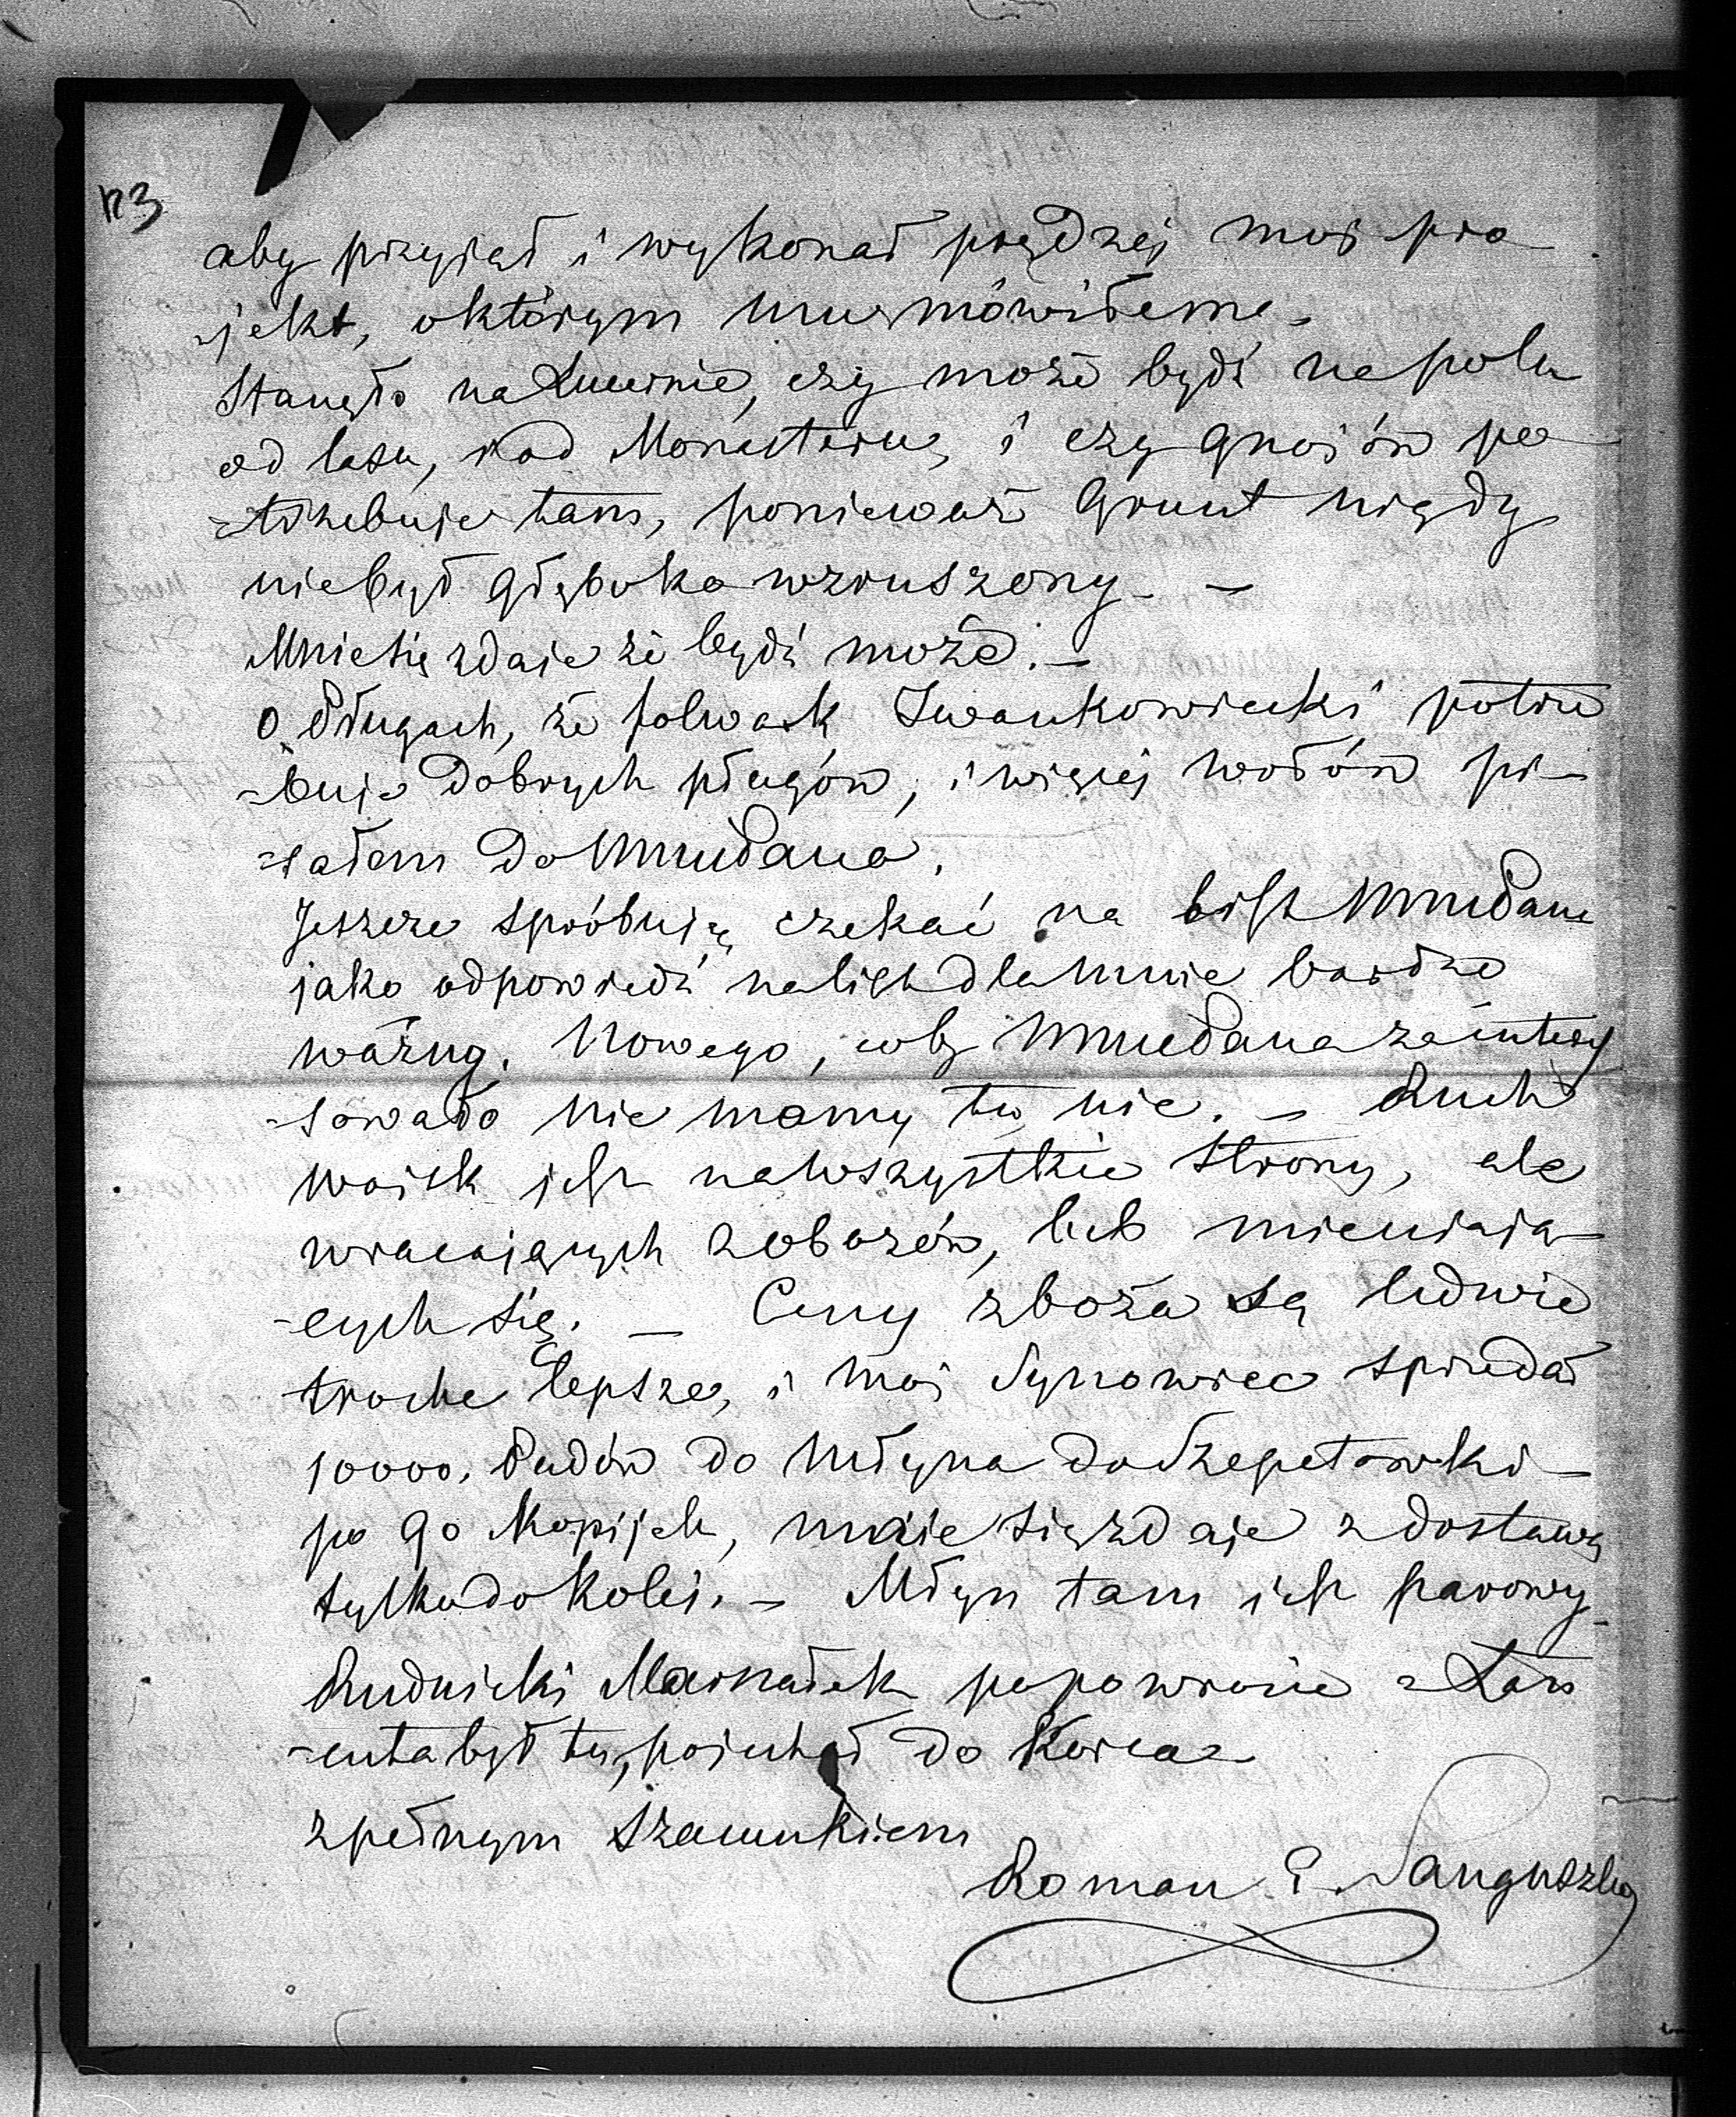 n3
aby przyjął i wykonał prędzej moj pro
-jekt, o którym mu mówiłem.
Stanęło na Lucernie, czy może bydź na polu
od lasu, nad Monasterem, i czy gnojów po
-trzebuje tam, ponieważ grunt nigdy
niebył głęboko wzruszony. —
Mnie się zdaje że bydź może. —
O Pługach, że folwark Iwankowiecki potrze
-buje dobrych pługów, i więcej wołów pi-
-sałem do WmPana.
Jeszcze spróbuję czekać na list WmPana
jako odpowiedź na list dla mnie bardzo
ważny. Nowego, coby WmPana zaintery
-sowało nie mamy tu nic. — Ruch
wojsk jest na wszystkie strony, ale
wracających z obozów, lub mieniają
-cych się. — Ceny zboża są ledwie
troche lepsze, i moj Synowiec sprzedał
10000. Pudów do Młyna do Szepetowki —
po 90 Kopijek, mnie się zdaje z dostawą
tylko do Kolei. — Młyn tam jest parowy.
Rudnicki Marszałek po powrocie z Tar
-enta był tu, pojechał do Korca
z pełnym szacunkiem
Roman Sanguszko